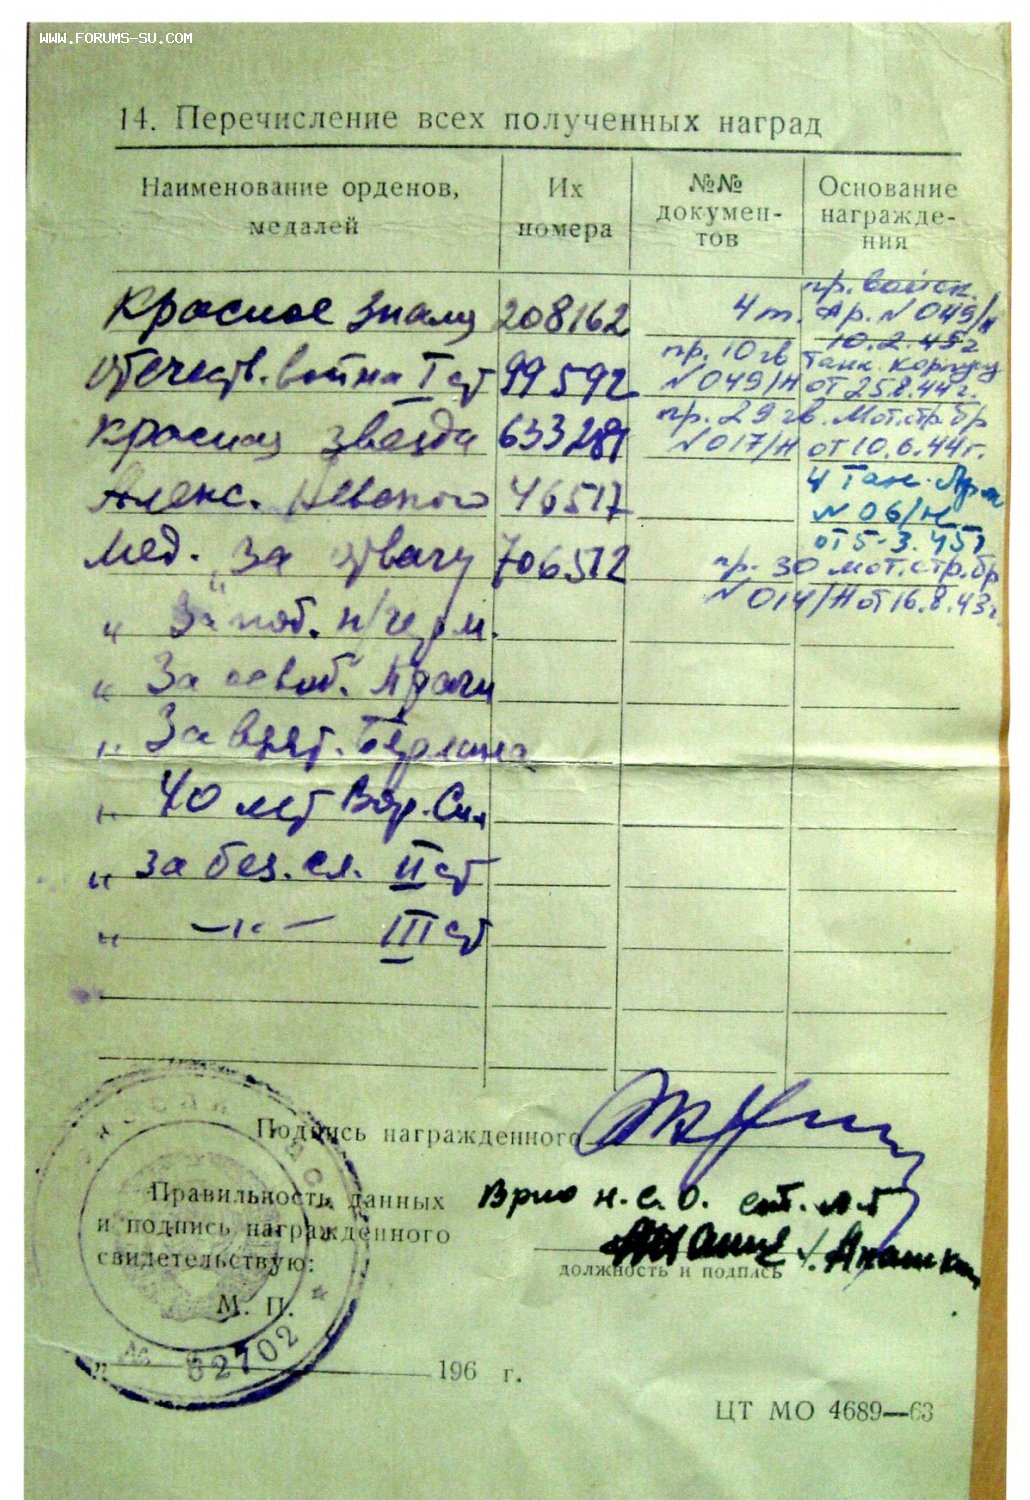 WWW.FORUMS-SU.COM
14. Перечисление всех полученных наград
Наименование орденов, медалей
Их номера
№№ докумен-
тов
Основание
награжде-
ния
Красное Знамя 208162 4 т. Ар. N 049/н
пр. войск.
10.2.45г
Отечеств. война I ст 99592 пр. 10 гв Танк. корпуса
N 049/Н от 25.8.44г.
Красная звезда 633281 пр. 29 гв. Мот.стр.бр
N 017/Н от 10.6.44г.
Алекс. Невского 46517 4 Тан. Арм
N 06/н
от 5-3.45г
Мед. За отвагу 706512 пр. 30 мот.стр.бр
N 014/Н от 16.8.43г.
" За поб. н/герм.
" За освоб. Праги
" За взят. Берлина
" 40 лет Вор. Сил
" за без. сл. II ст
" —"— III ст
Подпись награжденного
Правильность данных
и подпись награжденного
свидетельствую:
Врио н.с.о. ст. л-т
должность и подпись
М. П.
62702
" 196 г.
ЦТ МО 4689—63